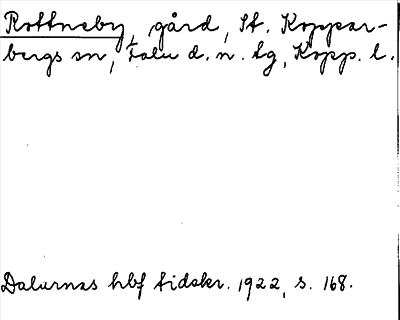 Rottneby, gård, St. Koppar-
bergs sn, Falu d. n. tg, Kopp. l.
Dalarnas hbf tidskr. 1922, s. 168.